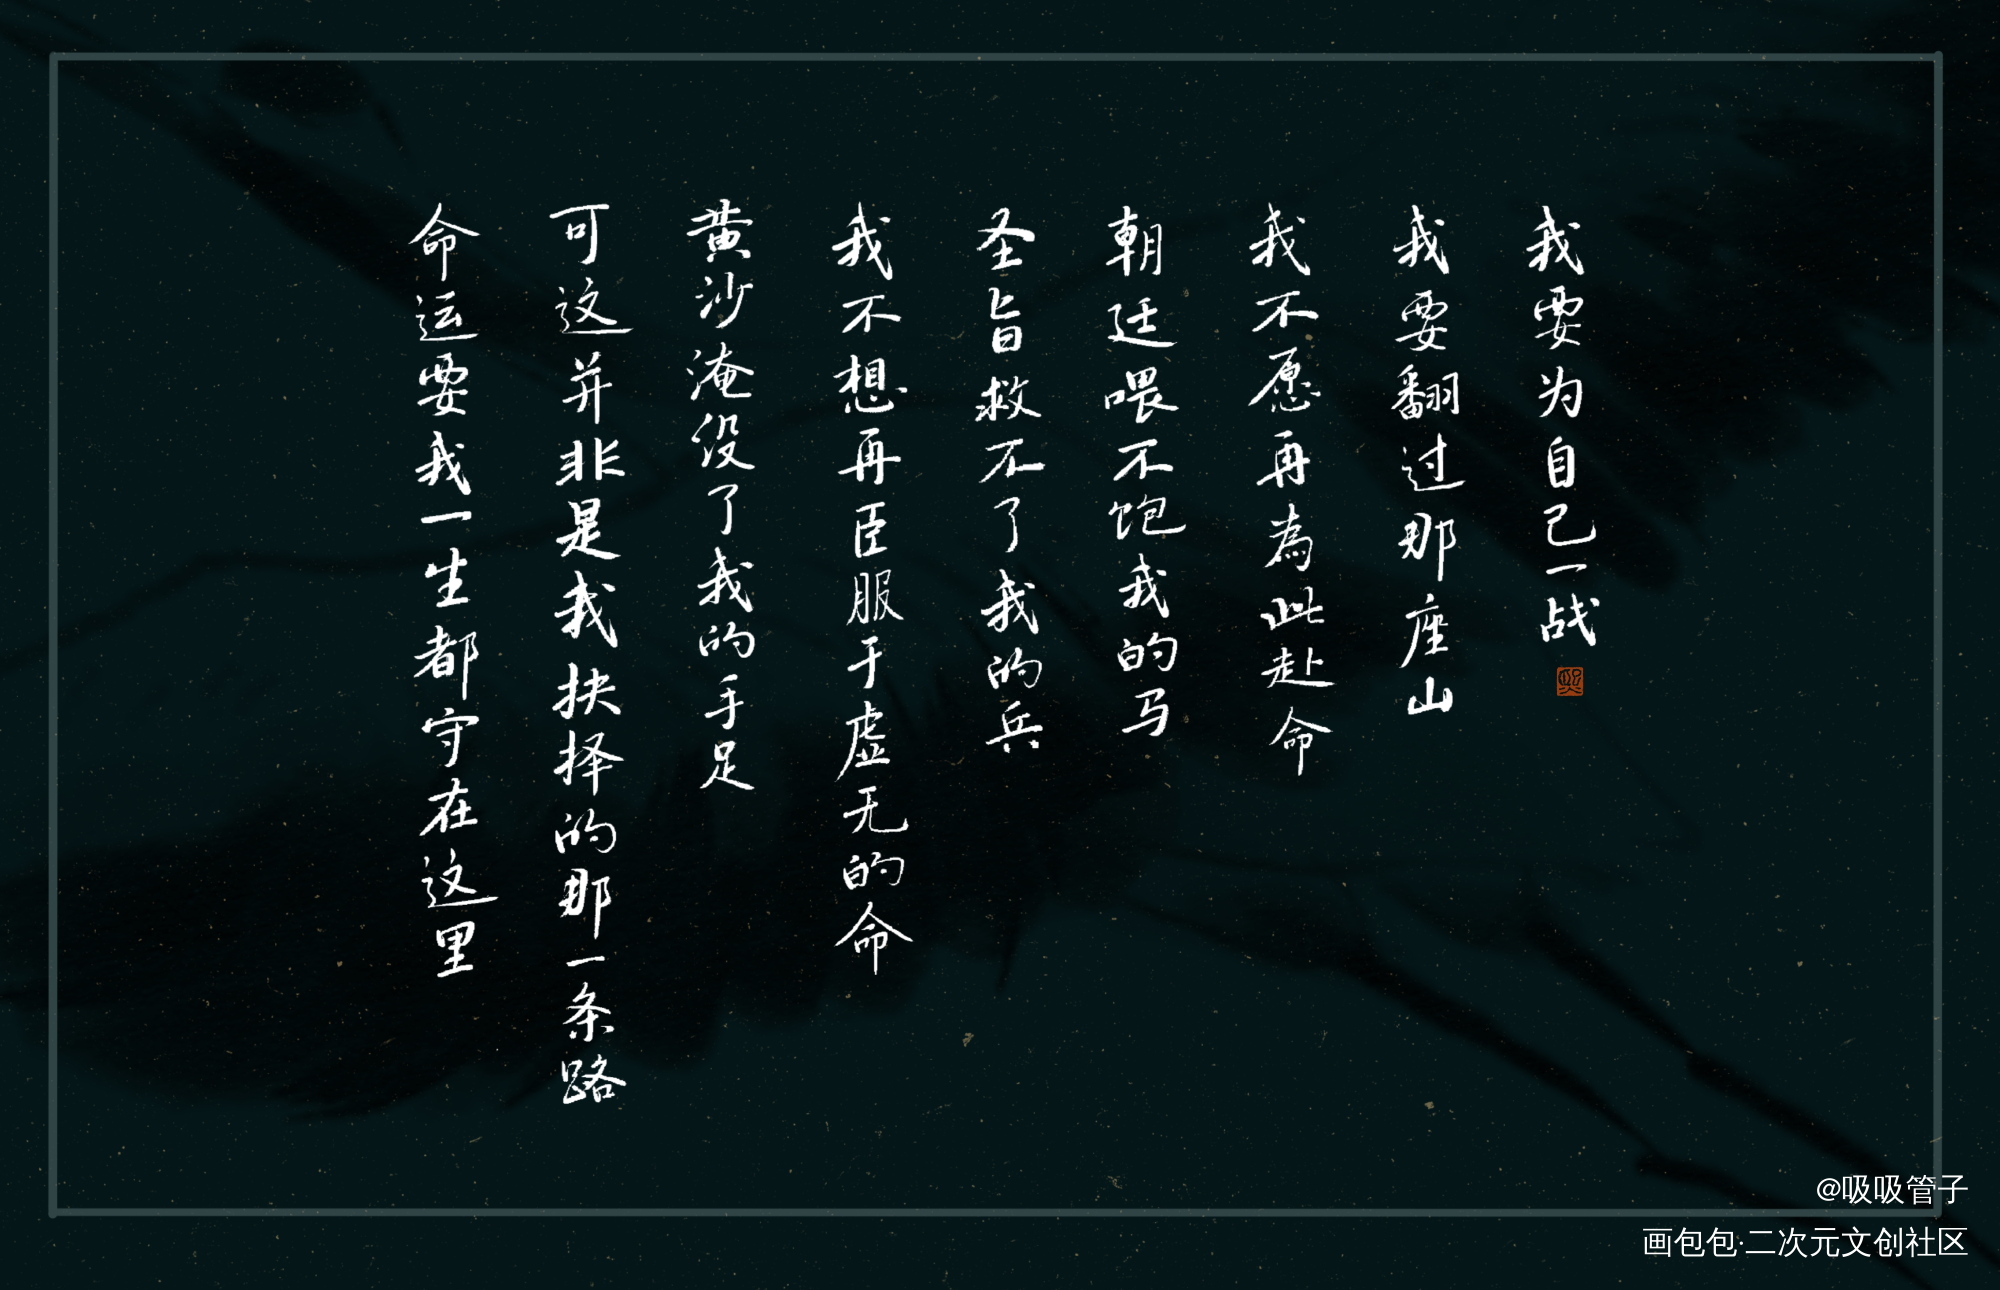 命运要我一生都守在这里
可这并非是我抉择的那一条路
黄沙淹没了我的手足
我不想再臣服于虚无的命
圣旨救不了我的兵
朝廷喂不饱我的马
我不愿再為此赴命
我要翻过那座山
我要为自己一战
@吸吸管子
画包包·二次元文创社区